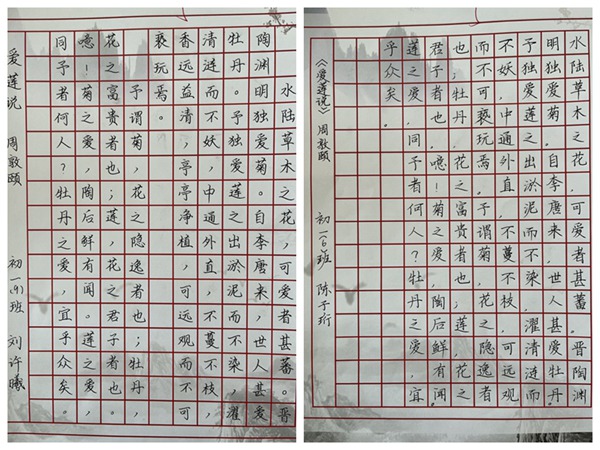 水陆草木之花，可爱者甚蕃。晋
陶渊明独爱菊。自李唐来，世人甚爱
牡丹。予独爱莲之出淤泥而不染，濯
清涟而不妖，中通外直，不蔓不枝，
香远益清，亭亭净植，可远观而不可
亵玩焉。
予谓菊，花之隐逸者也；牡丹，
花之富贵者也；莲，花之君子者也。
噫！菊之爱，陶后鲜有闻。莲之爱，
同予者何人？牡丹之爱，宜乎众矣。
爱莲说 周敦颐 初一(9)班 刘许曦
水陆草木之花，可爱者甚蕃。晋陶渊
明独爱菊。自李唐来，世人甚爱牡丹。
予独爱莲之出淤泥而不染，濯清涟而
不妖，中通外直，不蔓不枝，可远观
而不可亵玩焉。予谓菊，花之隐逸者
也；牡丹，花之富贵者也；莲，花之
君子者也。噫！菊之爱，陶后鲜有闻
莲之爱，同予者何人？牡丹之爱，宜
乎众矣。
《爱莲说》周敦颐 初一(6)班 陈子珩